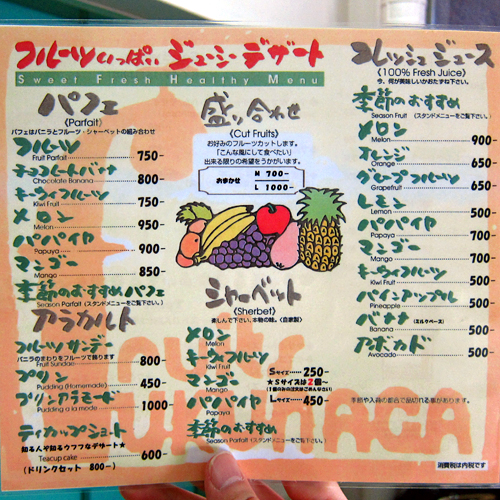 フルーツいっぱい ジューシーデザート
Sweet Fresh Healthy Menu
パフェ
《Parfait》
パフェはバニラとフルーツ・シャーベットの組み合わせ
フルーツ 750-
Fruit Parfait
チョコレートバナナ 800
Chocolate Banana
キーウィフルーツ 750-
Kiwi Fruit
メロン 950-
Melon
パパイヤ 900
Papaya
マンゴー 850
Mango
季節のおすすめパフェ
Season Parfait (スタンドメニューをご覧下さい。)
アラカルト
フルーツサンデー 800
バニラのまわりをフルーツで飾ります
Fruit Sundae
プリン 450-
Pudding (homemade)
プリンアラモード 1000-
Pudding a la mode
ティカップショート
知る人ぞ知るウフフなデザート★
Teacup cake 600-
(ドリンクセット 800-)
盛り合わせ
《Cut Fruits》
お好みのフルーツカットします。
「こんな風にして食べたい」
出来る限りの希望をうかがいます。
おまかせ M 700-
L 1000-
シャーベット
《Sherbet》
楽しんで下さい、本物の味。(自家製)
メロン
Melon
キーウィフルーツ
Kiwi Fruit
マンゴー
Mango
パパイヤ
Papaya
季節のおすすめ
Season Parfait (スタンドメニューをご覧下さい。)
Sサイズ 250-
★Sサイズは2個~
Lサイズ 450-
フレッシュジュース
《100% Fresh Juice》
今、何が美味しいかおたずね下さい。
季節のおすすめ
Season Fruit (スタンドメニューをご覧下さい。)
メロン 900
Melon
オレンジ 650
Orange
グレープフルーツ 650
Grapefruit
レモン 500
Lemon
パパイヤ 700
Papaya
マンゴー 700
Mango
キーウィフルーツ 500
Kiwi Fruit
パイナップル 500
Pineapple
バナナ (ミルクベース) 500
Banana
アボカド 500
Avocado
季節や入荷の都合で品切れる事があります。
消費税は内税です